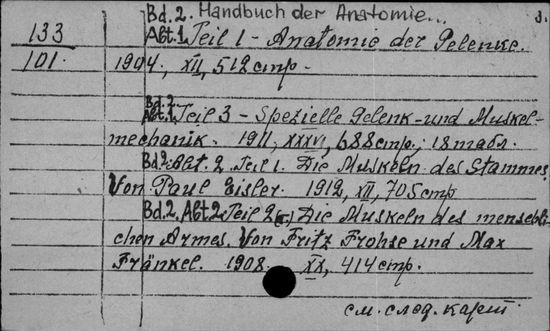 Bd. 2. Handbuch der Anatomie... 3.
133 Abt. 1. Teil 1 - Anatomie der Gelenke.
101. 1904, XII, 512 стр. -
Bd. 2.
Abt. 1. Teil 3 - Spezielle Gelenk- und Muskel-
mechanik. 1911, XXXVI, 688 стр., 18 табл.
Bd. 2. Abt. 2. Teil 1. Die Muskeln des Stammes
Von Paul Eisler. 1912, XII, 705 стр
Bd. 2. Abt. 2. Teil 2 Die Muskeln des menschli-
chen Armes. Von Fritz Frohse und Max
Fränkel. 1908. XX, 414 стр.
см. след. карт